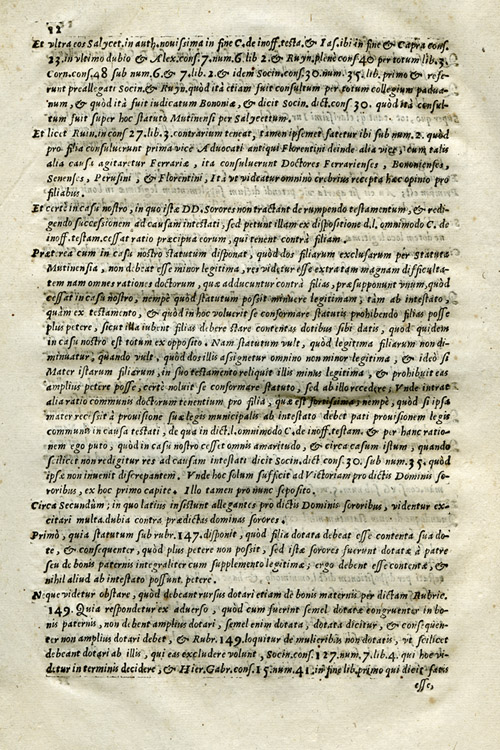 12
Et vltra eos Salycet.in auth.nouissima in fine C.de inoff.testa.& Ias.ibi in fine & Capra cons.
23.in vltimo dubio & Alex.cons.7.num.6.lib 2.& Ruyn.pleno cons 40 per totum lib.3.
Corn.cons.48 sub num.6.& 7.lib.2.& idem Socin.cons.30.num.35.lib.primo & refe-
runt præallegati Socin.& Ruyn.quòd ita etiam fuit consultum per totum collegium padua-
num, & quòd ita fuit iudicatum Bononiæ, & dicit Socin. dict.cons 30. quòd ita consul-
tum fuit super hoc statuto Mutinensi per Salycettum.
Et licet Ruin.in cons 27.lib.3.contrarium teneat, tamen ipsemet fatetur ibi sub num.2.quòd
pro filia consuluerunt prima vice Aduocati antiqui Florentini deinde alia vice, cum talis
alia causa agitaretur Ferrariæ, ita consuluerunt Doctores Ferrarienses, Bononienses,
Senenses, Perusini, & Florentini, Ita vt videatur omnino crebrius recepta hæc opinio pro
filiabus.
Et certè in casu nostro, in quo istæ DD.Sorores non tractant de rumpendo testamentum, & redi-
gendo successionem ad causam intestati, sed petunt illam ex dispositione d.l.omnimodo C. de
inoff.testam.cessat ratio præcipua eorum, qui tenent contra filiam.
Præterea cum in casu nostro statutum disponat, quòd dos filiarum exclusarum per Statuta
Mutinensia, non dibeat esse minor legitima, res videtur esse extra tam magnam difficulta-
tem nam omnes rationes doctorum, quæ adducuntur contra filias, præsupponunt vnum, quòd
cessat in casu nostro, nempè quòd statutum possit minuere legitimam, tàm ab intestato,
quàm ex testamento, & quòd in hoc voluerit se conformare statutis prohibendo filias posse
plus petere, sicut illa iubent filias debere stare contentas dotibus sibi datis, quod quidem
in casu nostro est totum ex opposito. Nam statutum vult, quòd legitima filiarum non di-
minuatur, quando vult, quòd dos illis assignetur omnino non minor legitima, & ideò si
Mater istarum filiarum, in suo testamento reliquit illis minus legitima, & prohibuit eas
amplius petere posse, certè noluit se conformare statuto, sed ab illo recedere; Vnde intrat
alia ratio communis doctorum tenentium pro filia, quæ est fortissima; nempè, quòd si ipsa
mater recessit à prouisione suæ legis municipalis ab intestato debet pati prouisionem legis
communis in causa testati, de qua in dict.l.omnimodo C. de inoff.testam. & per hanc ratio-
nem ego puto, quòd in casu nostro cesset omnis amaritudo, & circa casum istum, quando
scilicet non redigitur res ad causam intestati dicit Socin.dict cons.30. sub num.35.quòd
ipse non inuenit discrepantem. Vnde hoc solum sufficit ad Victoriam pro dictis Dominis so-
roribus, ex hoc primo capite. Illo tamen pro nunc seposito.
Circa Secundum; in quo latius insistunt allegantes pro dictis Dominis sororibus, videntur ex-
citari multa.dubia contra prædictas dominas sorores.
Primò, quia statutum sub rubr.147.disponit, quòd filia dotata debeat esse contenta sua do-
te, & consequenter, quòd plus petere non possit, sed istæ sorores fuerunt dotatæ à patre
seu de bonis paternis integraliter cum supplemento legitimæ; ergo debent esse contentæ, &
nihil aliud ab intestato possunt petere.
Neque videtur obstare, quòd debeant rursus dotari etiam de bonis maternis per dictam Rubric.
149. Quia respondetur ex aduerso, quòd cum fuerint semel dotatæ congruenter in bo-
nis paternis, non debent amplius dotari, semel enim dotata, dotata dicitur, & consequen-
ter non amplius dotari debet, & Rubr.149.loquitur de mulieribus non dotatis, vt scilicet
debeant dotari ab illis, qui eas excludere volunt, Socin.cons.127.num.7.lib.4. qui hoc vi-
detur in terminis decidere, & Hier.Gabr.cons.15.num.41.in fine lib.primo qui dicit satis
esse,